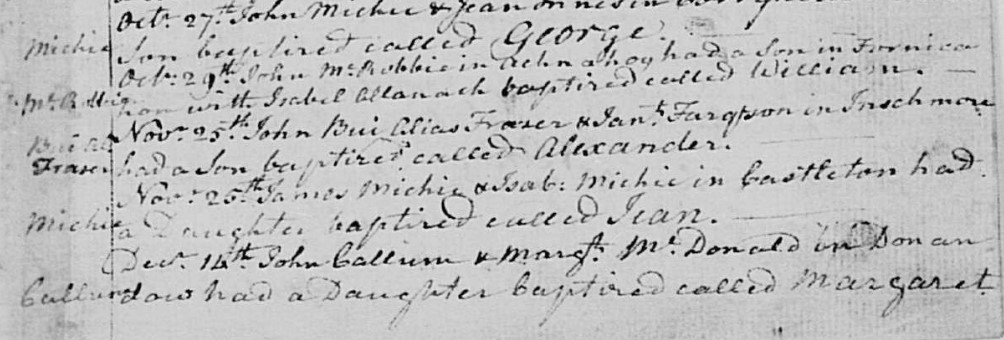 Octr. 27th. John Michie & Jean Innes in
Michie Son baptized called George.
Octr. 29th. John McRobbie in Achnahoy had a Son in Fornica
McRobbie tion with Isabel Allanach baptized called William. —
Novr. 25th. John Bui Alias Fraser & Jant. Farqrson in Inschmore
Bui Als
Fraser had a Son baptized called Alexander.
Novr. 26th James Michie & Isab: Michie in Castleton had
Michie a Daughter baptized called Jean. —
Decr. 14th. John Callum & Margt. McDonald in Donan
Callum dow had a Daughter baptized called Margaret.